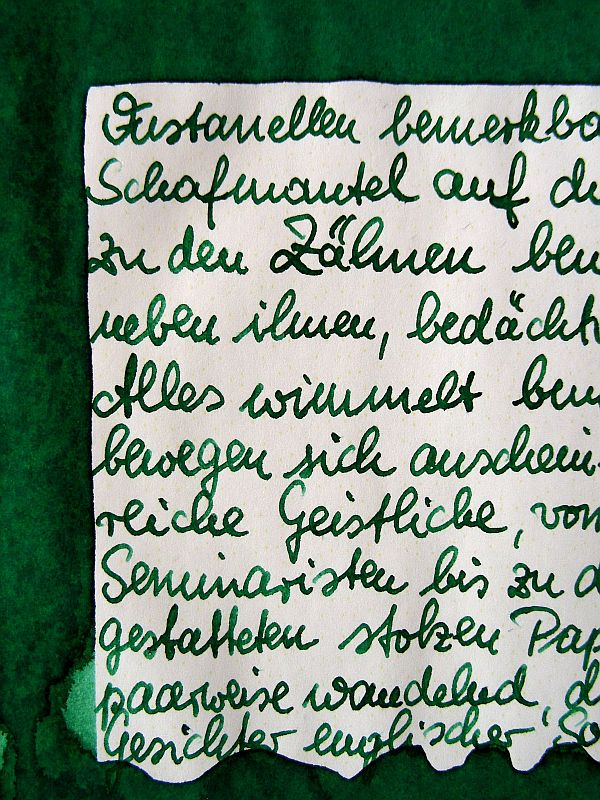 Fustanellen bemerkba
Schafmantel auf d
zu den Zähnen be
neben ihnen, bedächt
Alles wimmelt
bewegen sich anschein
reiche Geistliche, von
Seminaristen bis zu d
gestatteten stolzen Pap
paarweise wandelnd, d
Gesichter englischer So